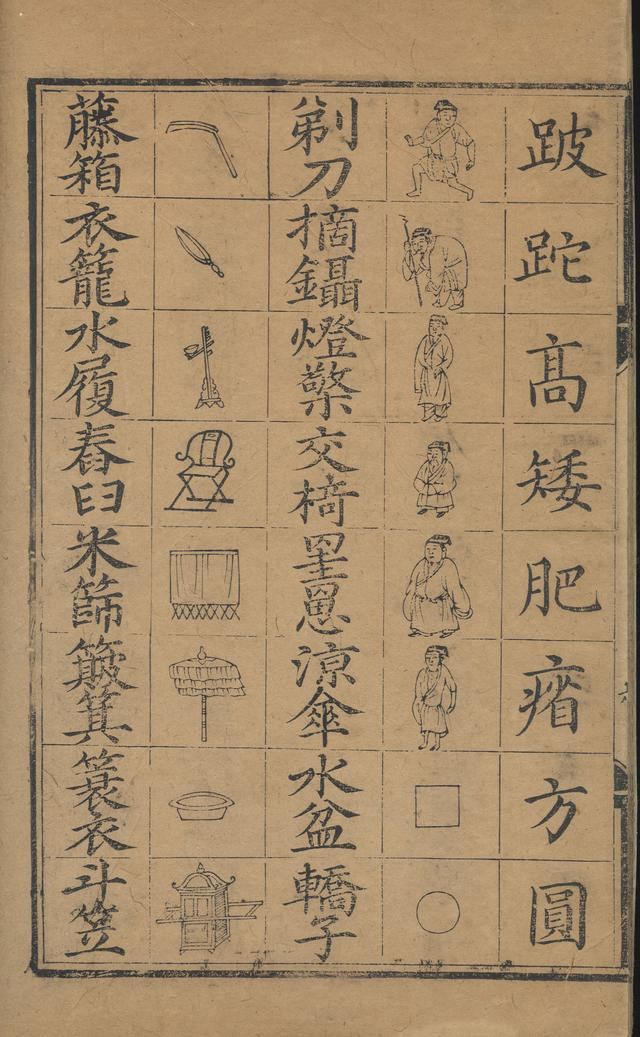 跛跎高矮肥瘠方圓
剃刀摘鑷燈檠交椅罣罳涼傘水盆轎子
藤箱衣籠水履舂臼米篩簸箕簑衣斗笠